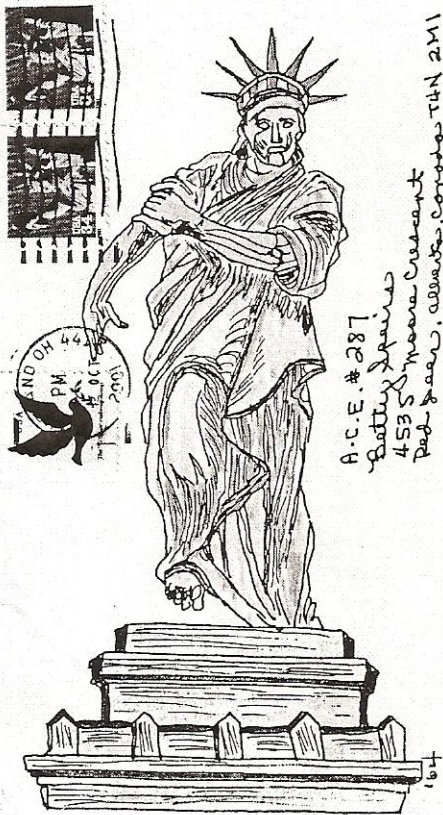 AND OH 44
PM
OCT
2001
A.C.E. #287
Betty
4535 Moore Crescent
Red Deer, Alberta, Canada T4N 2M1